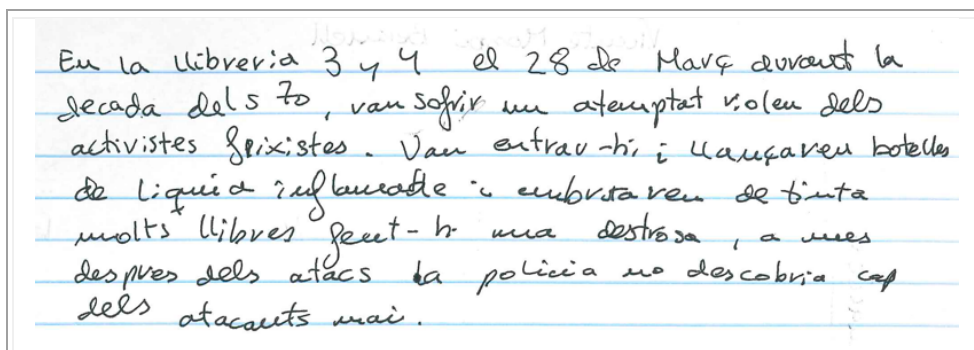 En la llibreria 3 y 4 el 28 de Març durant la
decada dels 70, van sofrir un atemptat violen dels
activistes feixistes. Van entrar-hi, i llançaren botelles
de liquid inflamable i embrutaren de tinta
molts llibres fent-hi una destrosa, a mes
despres dels atacs la policia no descobria cap
dels atacants mai.